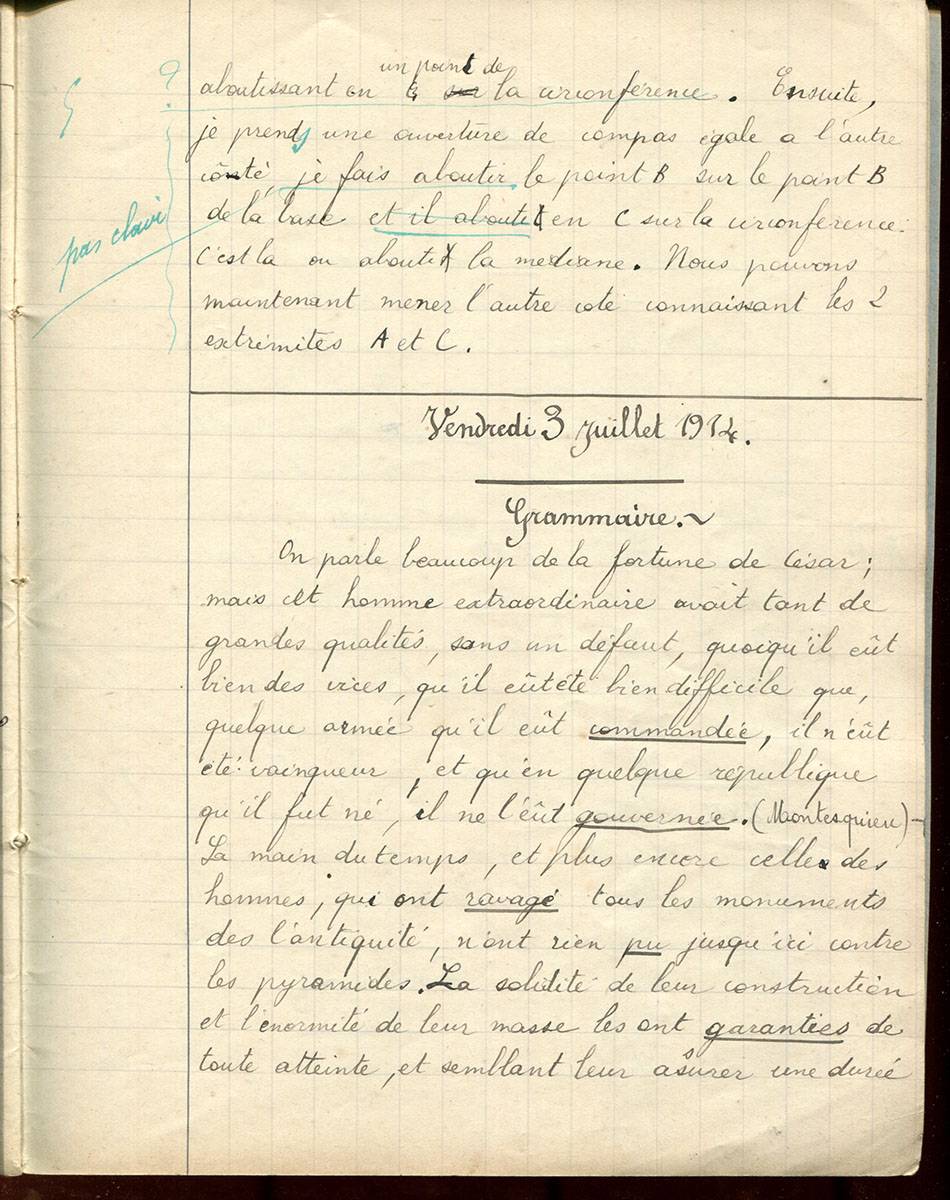 un point de
aboutissant en la circonférence. Ensuite,
je prends une ouverture de compas egale a l'autre
côté, je fais aboutir le point B sur le point B
de la base et il aboutit en C sur la circonférence.
C'est la ou aboutit la mediane. Nous pouvons
pas clair
maintenant mener l'autre coté connaissant les 2
extrémités A et C.
Vendredi 3 Juillet 1914.
Grammaire.~
On parle beaucoup de la fortune de César ;
mais cet homme extraordinaire avait tant de
grandes qualités, sans un défaut, quoiqu'il eût
bien des vices, qu'il eût été bien difficile que,
quelque armée qu'il eût commandée, il n'eût
été vainqueur, et qu'en quelque république
qu'il fut né, il ne l'eût gouvernée. (Montesquieu) -
La main du temps, et plus encore celle des
hommes, qui ont ravagé tous les monuments
des l'antiquité, n'ont rien pu jusqu'ici contre
les pyramides. La solidité de leur construction
et l'énormité de leur masse les ont garanties de
toute atteinte, et semblant leur assurer une durée